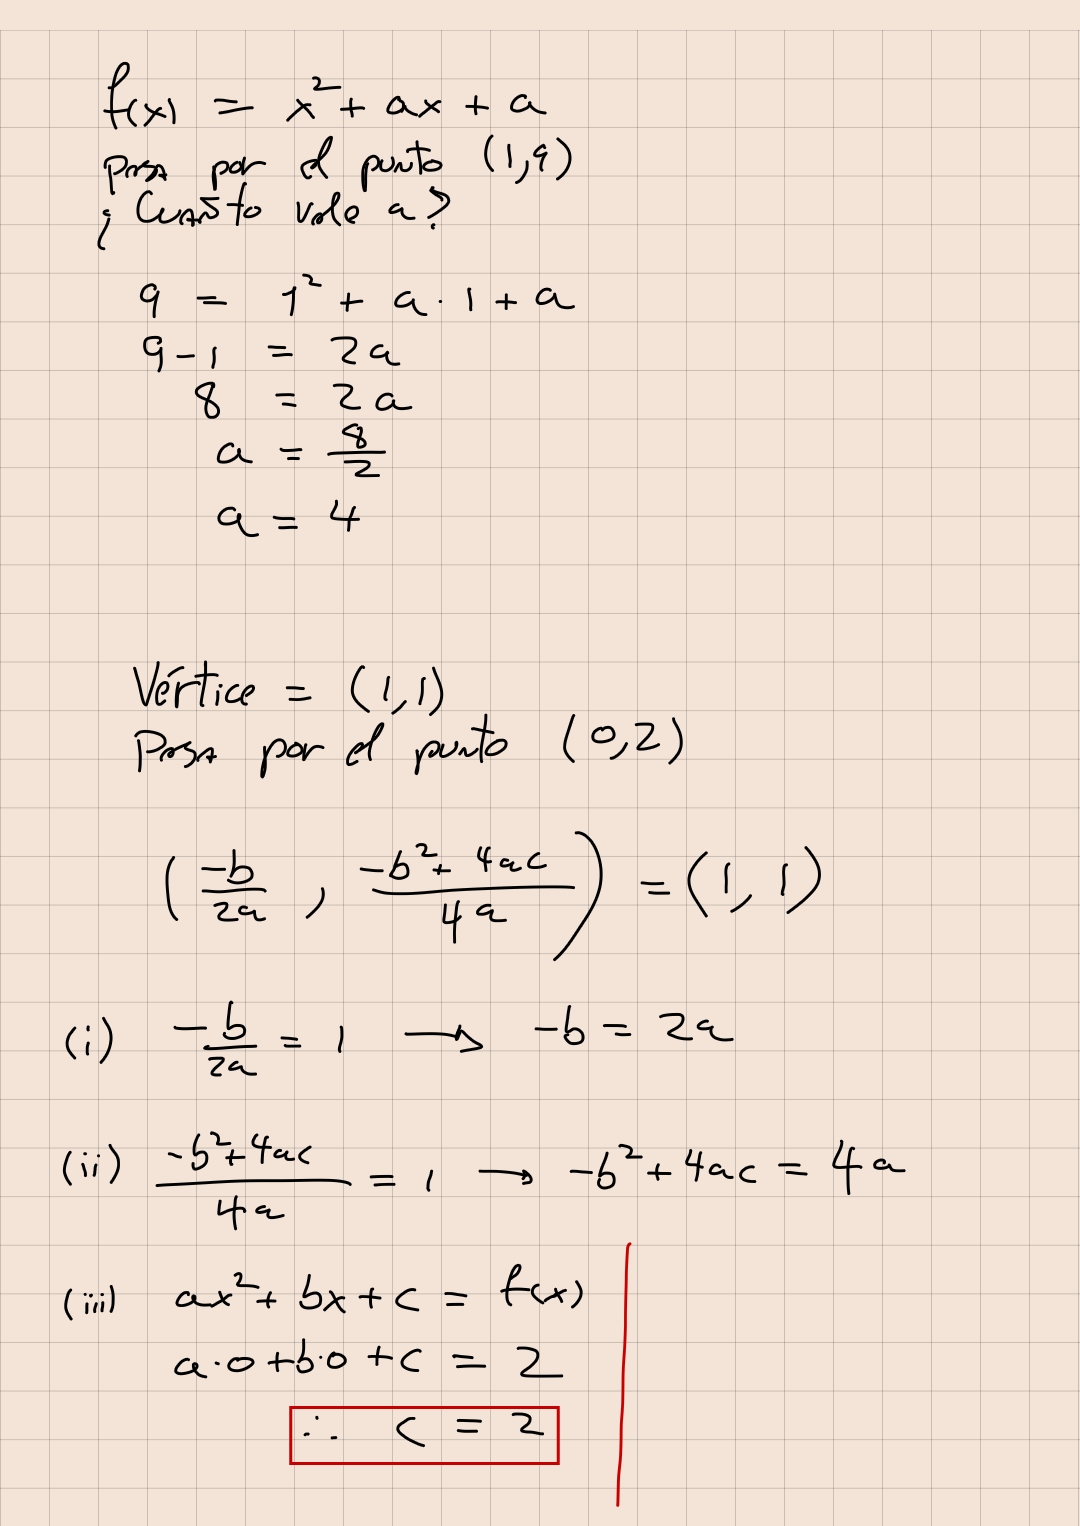 f(x) = x² + ax + a
Pasa por el punto (1,9)
¿Cuánto vale a?
9 = 1² + a · 1 + a
9 - 1 = 2a
8 = 2a
a = 8/2
a = 4
Vértice = (1,1)
Pasa por el punto (0,2)
(-b/2a , (-b² + 4ac)/4a) = (1, 1)
(i) -b/2a = 1 → -b = 2a
(ii) (-b² + 4ac)/4a = 1 → -b² + 4ac = 4a
(iii) ax² + bx + c = f(x)
a·0 + b·0 + c = 2
∴ c = 2